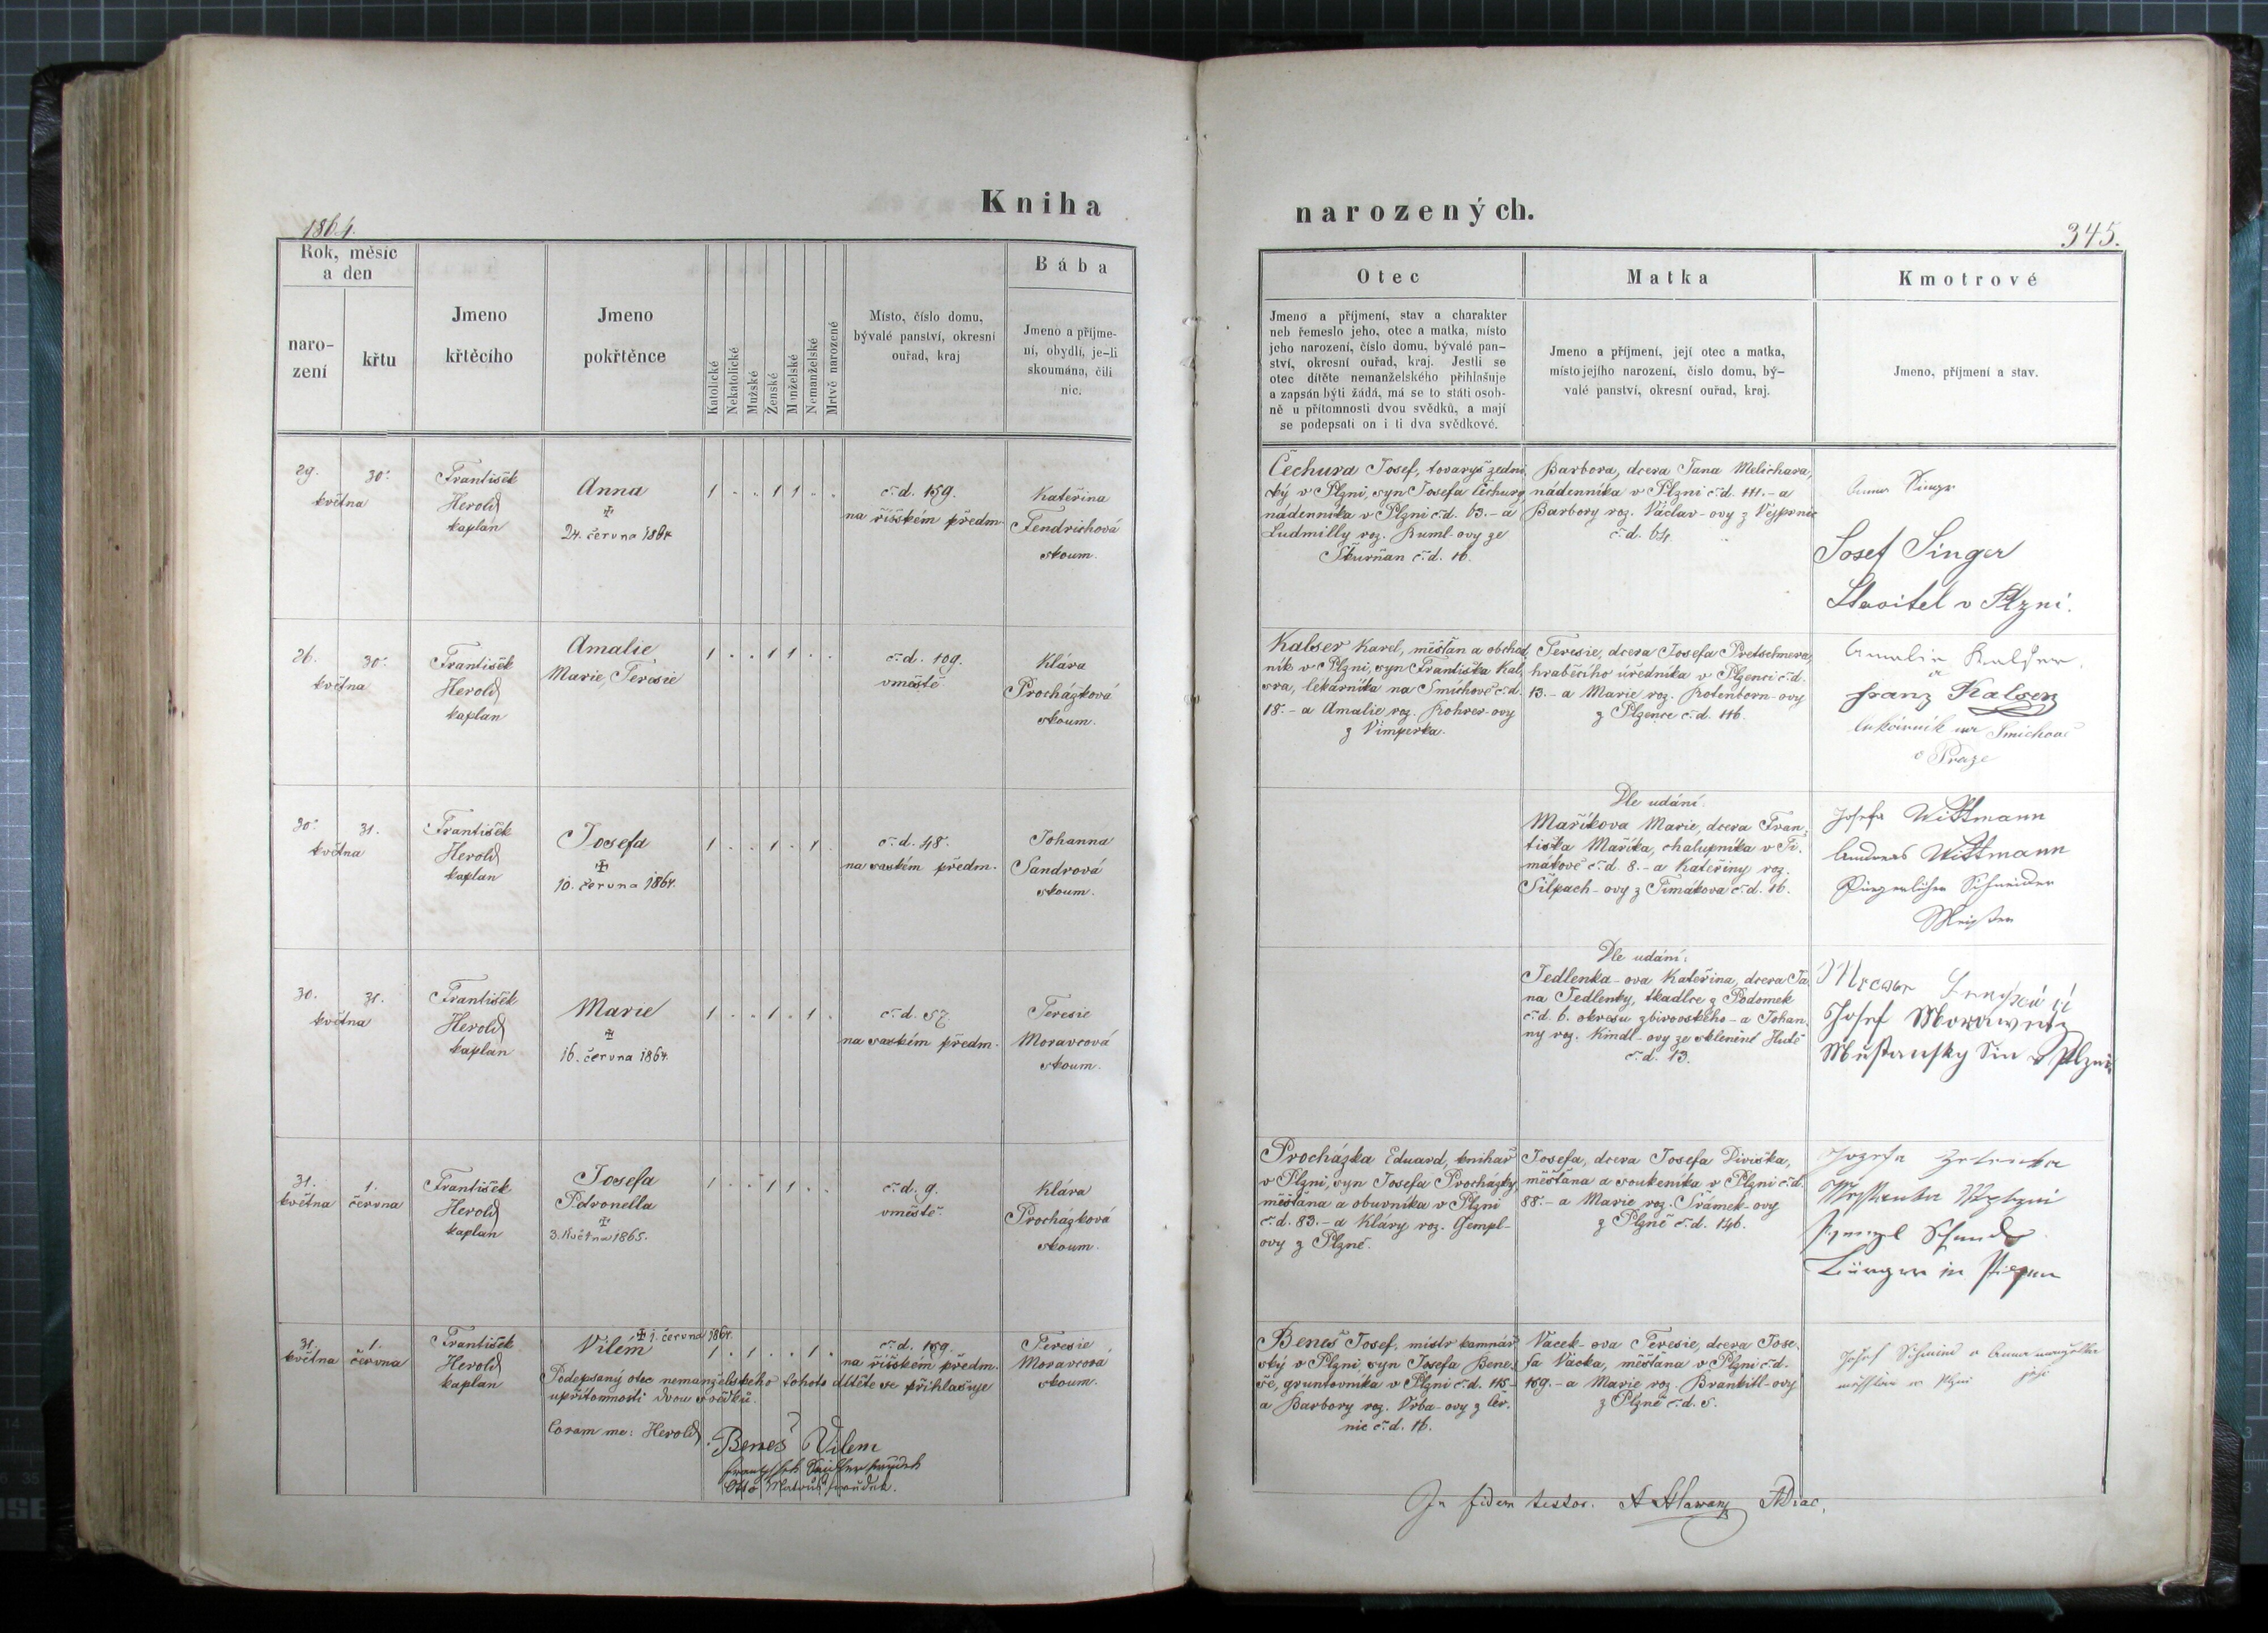 Kniha
1864.
Rok, měsíc
a den
naro-
zení
křtu
Jmeno
křtěcího
Jmeno
pokřtěnce
Katolické
Nekatolické
Mužské
Ženské
Manželské
Nemanželské
Mrtvě narozené
Místo, číslo domu,
bývalé panství, okresní
ouřad, kraj
Bába
Jmeno a příjme-
ní, obydlí, je-li
skoumána, čili
nic.
29. 30.
května
František
Herold
kaplan
Anna
24. června 1864
1 . . 1 1 . .
č. d. 159.
na říšském předm.
Kateřina
Fendrichová
skoum.
26. 30.
května
František
Herold
kaplan
Amalie
Marie, Teresie
1 . . 1 1 . .
č. d. 109.
v městě
Klára
Procházková
skoum.
30. 31.
května
František
Herold
kaplan
Josefa
10. června 1864.
1 . . 1 . 1 .
č. d. 48.
na saském předm.
Johanna
Sandrová
skoum.
30. 31.
května
František
Herold
kaplan
Marie
16. června 1864.
1 . . 1 . 1 .
č. d. 57.
na saském předm.
Teresie
Moravcová
skoum.
31. 1.
května června
František
Herold
kaplan
Josefa
Petronella
3. Května 1865.
1 . . 1 1 . .
č. d. 9.
v městě.
Klára
Procházková
skoum.
31. 1.
května června
František
Herold
kaplan
1. června 1864.
Vilém
1 . 1 . . 1 .
č. d. 159.
na říšském předm.
Teresie
Moravcová
skoum.
Podepsaný otec nemanželského tohoto dítěte se přihlašuje
u přítomnosti dvou svědků.
Coram me: Herold
Beneš Vilem
narozených.
345.
Otec
Jmeno a příjmení, stav a charakter
neb řemeslo jeho, otec a matka, místo
jeho narození, číslo domu, bývalé pan-
ství, okresní ouřad, kraj. Jestli se
otec dítěte nemanželského přihlašuje
a zapsán býti žádá, má se to státi osob-
ně u přítomnosti dvou svědků, a mají
se podepsati on i ti dva svědkové.
Matka
Jmeno a příjmení, její otec a matka,
místo jejího narození, číslo domu, bý-
valé panství, okresní ouřad, kraj.
Kmotrové
Jmeno, příjmení a stav.
Čechura Josef, tovaryš zedni-
cký v Plzni, syn Josefa Čechury,
nádenníka v Plzni č. d. 63. - a
Ludmilly roz. Buml-ovy ze
Škurňan č. d. 16.
Barbora, dcera Jana Melichara,
nádenníka v Plzni č. d. 111. - a
Barbory roz. Václav-ovy z Vejprnic
č. d. 64.
Anna Singer
Josef Singer
Stavitel v Plzni.
Kalser Karel, měšťan a obchod-
ník v Plzni, syn Františka Kal-
sra, lékárníka na Smíchově č. d.
18. - a Amalie roz. Rohrer-ovy
z Vimperka.
Teresie, dcera Josefa Pretschnera,
hraběcího úředníka v Plzenci č. d.
13. - a Marie roz. Rotenborn-ovy
z Plzence č. d. 116.
Amalia Kalser
a
Franz Kalser
na Smichově
v Praze
Dle udání:
Maříkova Marie, dcera Fran-
tiška Maříka, chalupníka v Ti-
mákově č. d. 8. - a Kateřiny roz.
Šilpach-ovy z Timákova č. d. 16.
Josefa Wittmann
Andreas Wittmann
Bürgerlicher Schneider
Meister
Dle udání:
Jedlenka-ova Kateřina, dcera Ja-
na Jedlenky, tkadlce z Podomek
č. d. 6. okresu zbirovského - a Johan-
ny roz. Kindl-ovy ze sklenéné Hutě
č. d. 13.
Josef Morawetz
Procházka Eduard, knihař
v Plzni, syn Josefa Procházky,
měšťana a obuvníka v Plzni
č. d. 83. - a Kláry roz. Gempl-
ovy z Plzně.
Josefa, dcera Josefa Diviška,
měšťana a soukeníka v Plzni č. d.
88. - a Marie roz. Šrámek-ovy
z Plzně č. d. 146.
Bürger in Pilsen
Beneš Josef, mistr kamnář-
ský v Plzni, syn Josefa Bene-
še, gruntovníka v Plzni č. d. 115 -
a Barbory roz. Vrba-ovy z Čer-
nic č. d. 16.
Vacek-ova Teresie, dcera Jose-
fa Vacka, měšťana v Plzni č. d.
159. - a Marie roz. Brankitl-ovy
z Plzně č. d. 5.
Josef Schmied a Anna manželka
jeho
In fidem testor.